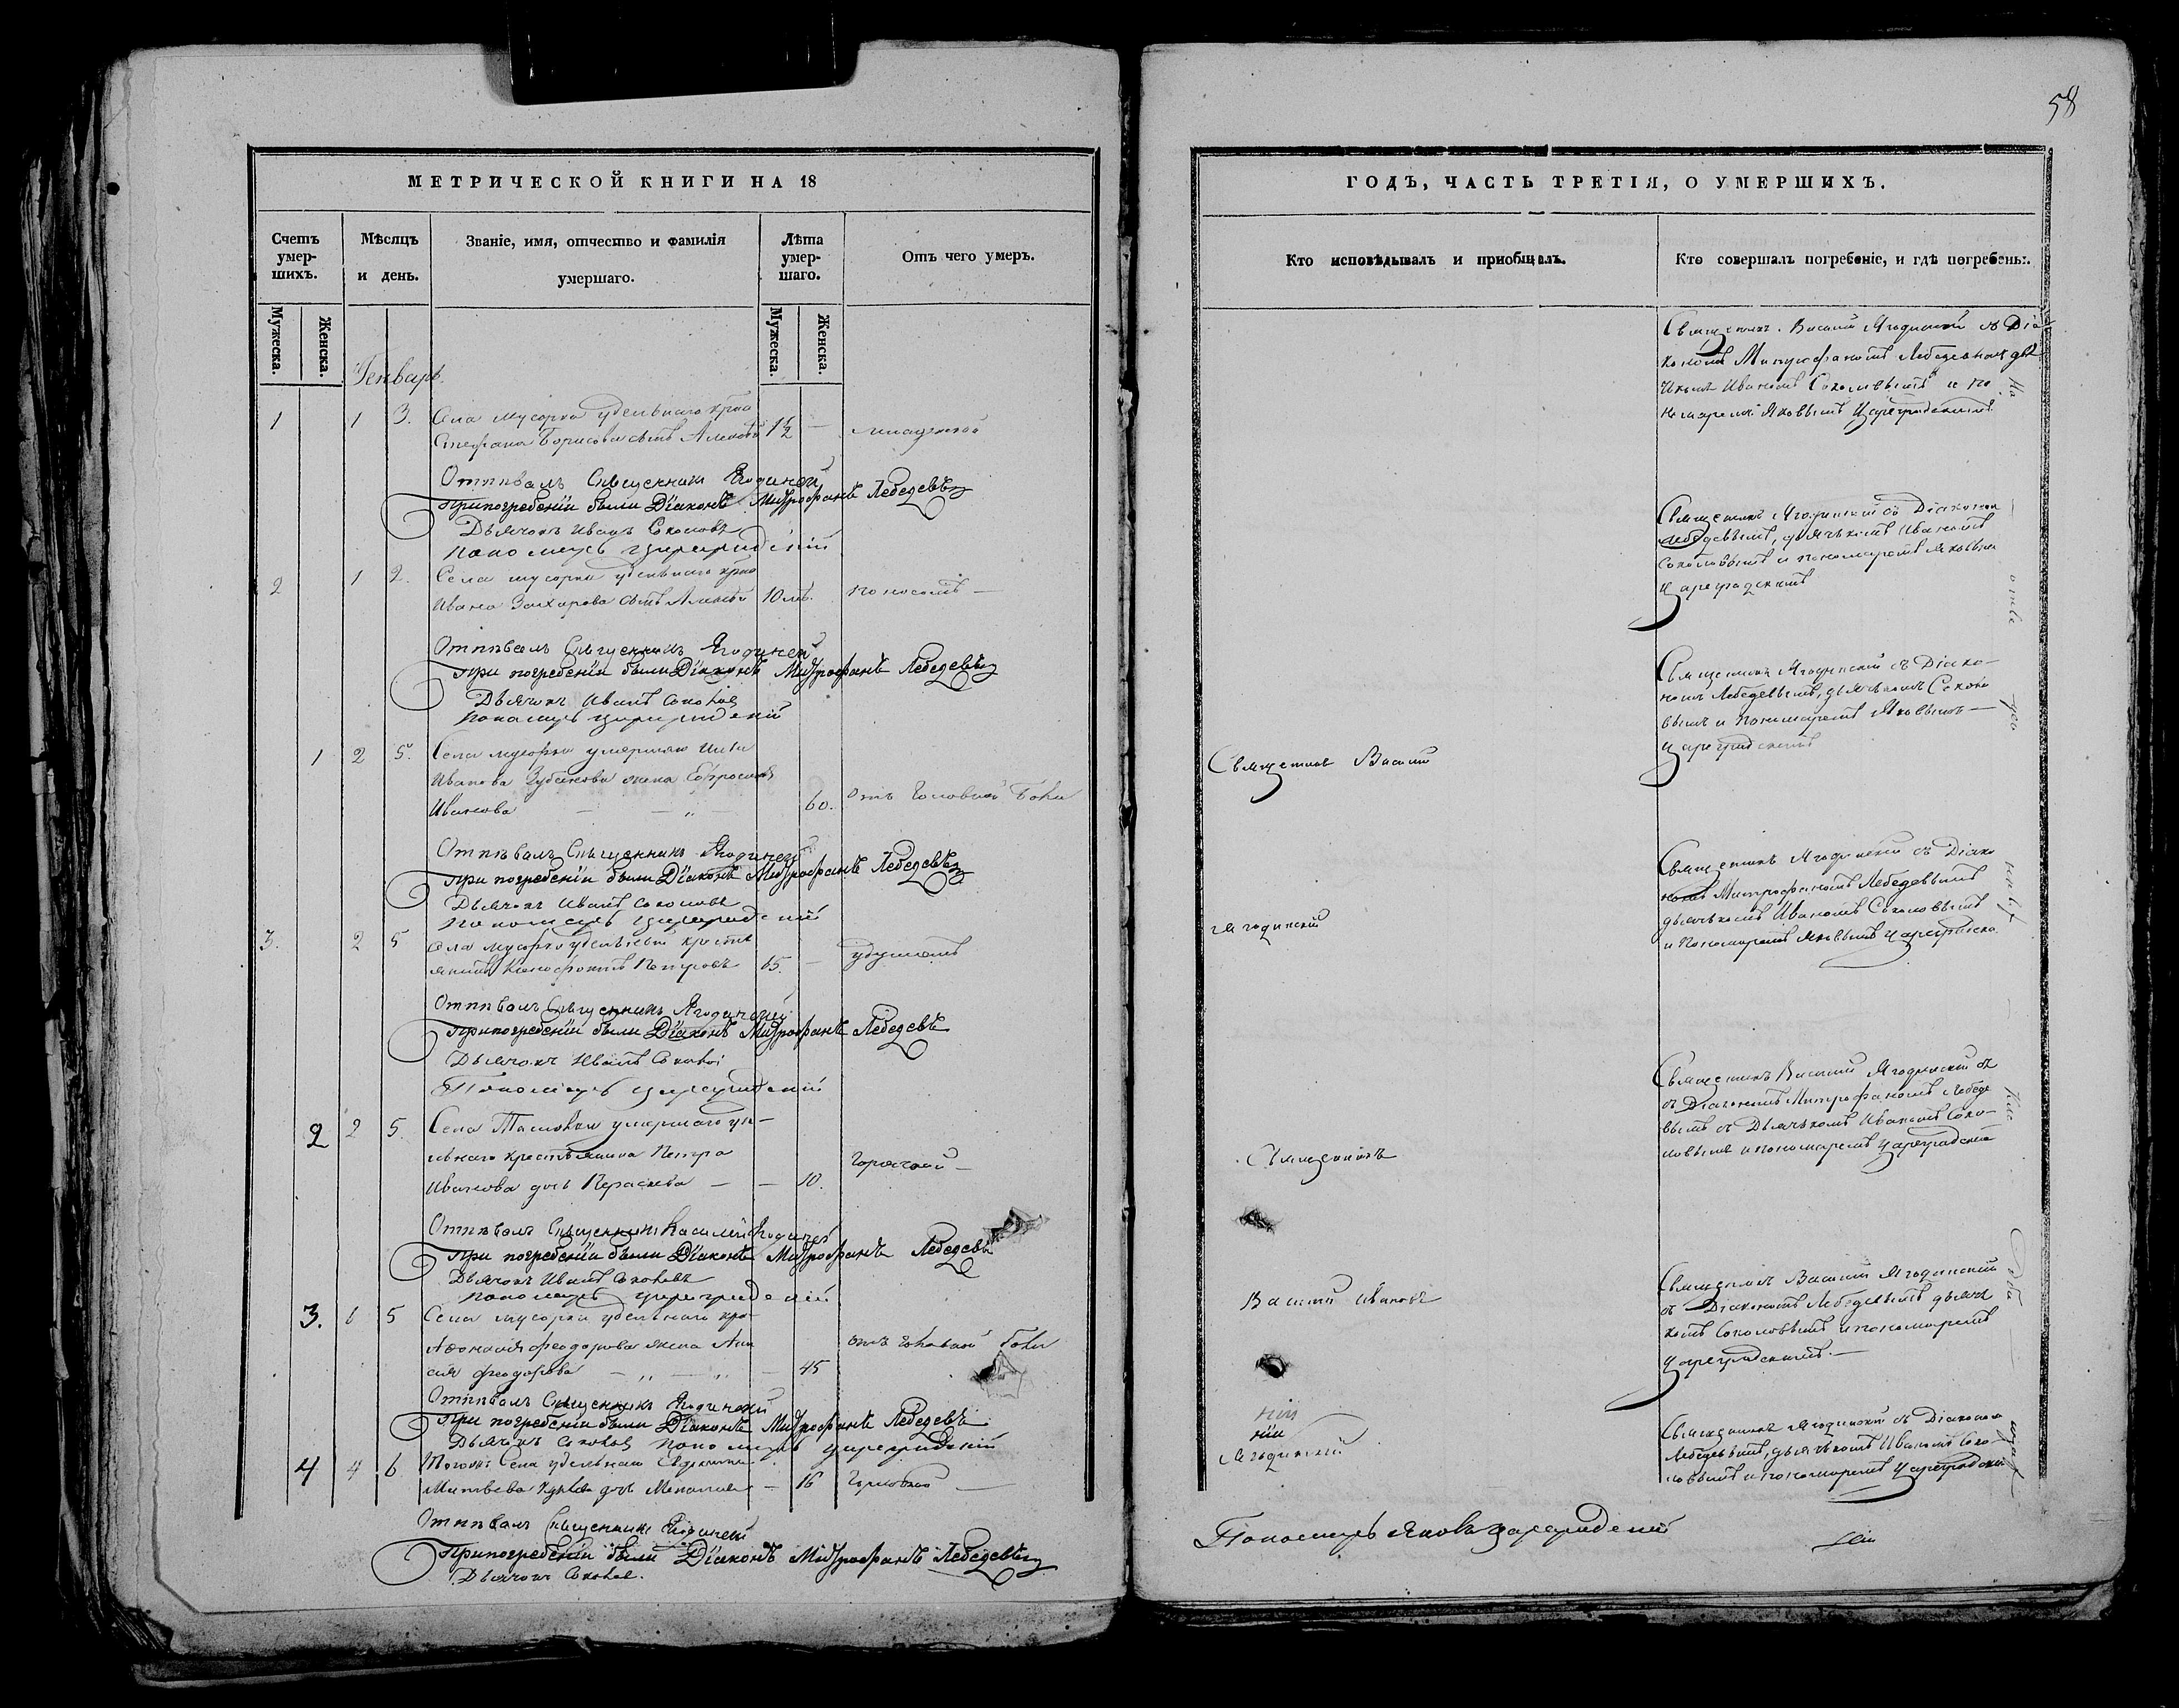 58
МЕТРИЧЕСКОЙ КНИГИ НА 18
Счетъ умер-шихъ.
Мужеска.
Женска.
Мѣсяцъ и день.
Званіе, имя, отчество и фамилія
умершаго.
Лѣта умер-шаго.
Мужеска.
Женска.
Отъ чего умеръ.
Генварь.
1 1 3. Села Мусорка удельнаго
Стефана Борисова сынъ 1½
Отпѣвалъ Священникъ Ягодинскій
При погребеніи были Діаконъ Митрофанъ Лебедевъ
Дьячокъ Иванъ Соколовъ
Пономарь Цареградскій
2 1 2. Села Мусорки удельнаго
Ивана Захарова сынъ Алексѣй 10 поносомъ
Отпѣвалъ Священникъ Ягодинскій
При погребеніи были Діаконъ Митрофанъ Лебедевъ
Дьячокъ Иванъ Соколов
Пономарь Цареградскій
1 2 5. Села Мусорки умершаго
Иванова жена Ефросинья
Иванова 60. отъ головной боли
Отпѣвалъ Священникъ Ягодинскій
При погребеніи были Діаконъ Митрофанъ Лебедевъ
Дьячокъ Иванъ Соколовъ
Пономарь Цареградскій
3. 2 5 Села Мусорки удельный кресть
янинъ Ксенофонтъ Петровъ 65. удушьемъ
Отпѣвалъ Священникъ Ягодинскій
При погребеніи были Діаконъ Митрофанъ Лебедевъ
Дьячокъ Иванъ Соколов
Пономарь Цареградскій
2 2 5. Села умершаго уд-
льнаго крестьянина Петра
Иванова дочь Параскева 10. горячкой
Отпѣвалъ Священникъ Василій Ягодинскій
При погребеніи были Діаконъ Митрофанъ Лебедевъ
Дьячокъ Иванъ Соколовъ
Пономарь Цареградскій
3. 5 Села Мусорки удельнаго
Афонасія Феодорова жена
Феодорова 45 отъ головной боли
Отпѣвалъ Священникъ Ягодинскій
При погребеніи были Діаконъ Митрофанъ Лебедевъ
Дьячокъ Соколов Пономарь Цареградскій
4 4 6 Тогожъ села удельнаго
Матвѣева дочь 16
Отпѣвалъ Священникъ Ягодинскій
При погребеніи были Діаконъ Митрофанъ Лебедевъ
Дьячокъ Соколов.
ГОДЪ, ЧАСТЬ ТРЕТІЯ, О УМЕРШИХЪ.
Кто исповѣдывалъ и пріобщалъ.
Кто совершалъ погребеніе, и гдѣ погребенъ:.
Священникъ Василій
Ягодинскій
Священникъ
Василій Ивановъ
Ягодинскій
Священникъ Василій Ягодинскій съ Діа
кономъ Митрофаномъ Лебедевымъ
Иваномъ Соколовымъ и по
номаремъ Яковымъ Цареградскимъ
Священникъ Ягодинскій съ Діакономъ
Лебедевымъ, дьячькомъ Иваномъ
Соколовымъ и пономаремъ Яковымъ
Цареградскимъ
Священникъ Ягодинскій съ Діако-
номъ Лебедевымъ, дьячкомъ Соколо
вымъ и пономаремъ Яковымъ
Цареградскимъ
Священникъ Ягодинскій съ Діако
номъ Митрофаномъ Лебедевымъ
дьячькомъ Иваномъ Соколовымъ
и Пономаремъ Яковымъ Цареградско
Священникъ Василій Ягодинскій съ
съ Діакономъ Митрофаномъ Лебеде
вымъ съ Дьячькомъ Иваномъ Соко-
ловымъ и пономаремъ Цареградски
Священникъ Василій Ягодинскій
съ Діакономъ Лебедевымъ дьячь
комъ Соколовымъ и пономаремъ
Цареградскимъ.
Священникъ Ягодинскій съ Діакономъ
Лебедевымъ, дьячькомъ Иваномъ Соко
ловымъ и пономаремъ Цареградски
Пономарь Яковъ Цареградскій